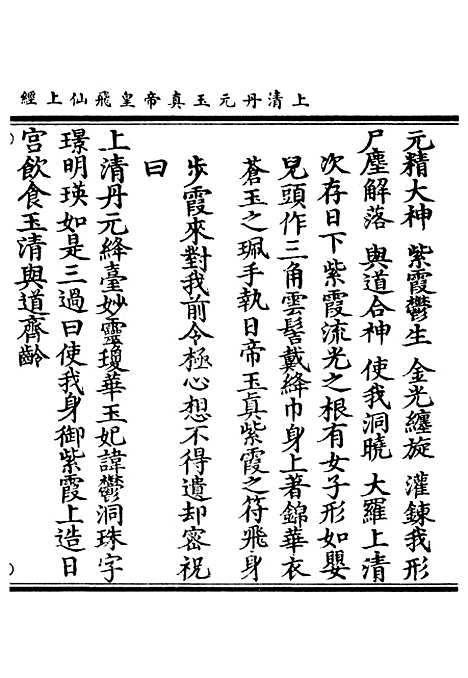 上清丹元玉真帝皇飛仙上經
元精大神 紫霞鬱生 金光纏旋 灌鍊我形
尸塵解落 與道合神 使我洞曉 大羅上清
次存日下紫霞流光之根有女子形如嬰
兒頭作三角雲髻戴絳巾身上著錦華衣
蒼玉之珮手執日帝玉真紫霞之符飛身
步霞來對我前令極心想不得遺却密祝
曰
上清丹元絳臺妙靈瓊華玉妃諱鬱洞珠字
璟明瑛如是三過曰使我身御紫霞上造日
宮飲食玉清與道齊齡